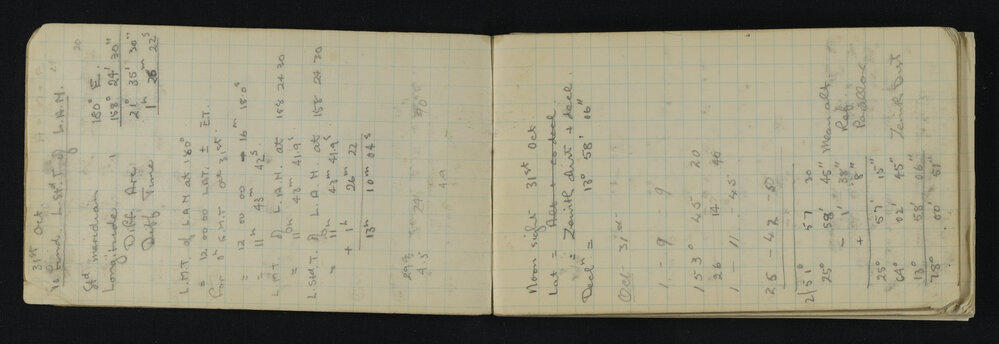 31st Oct
To find L.Std.T. of L.A.N.
Std meridian 180° E.
Longitude 158° 24' 30"
Diff Arc 21° 35' 30"
Diff Time 1h 26m 22s
L.M.T. of L.A.N. at 180°
= 12 00 00 L.A.T. ± E.T.
for 0h G.M.T. Oct 31st.
= 12 00 00 - 16m 18.0s
= 11h 43m 42s
L.M.T. of L.A.N. at 158 24 30
= 11h 43m 41.9s
L.Std.T. of L.A.N. at 158 24 30
= 11h 43m 41.9s
+ 1h 26m 22
13h 10m 04s
29½ 24
4.5
Noon sight 31st Oct
Lat = Alt + co decl
= Zenith dist + decl.
Decln = 13° 58' 06"
Oct 31st
1 - 9 9
153° 45 20
26 14 40
1 - 11 45
25 - 42 - 50
2/51° 57 30
25° 58' 45" Mean alt
- 1 38" Ref
+ 8" Parallax
25° 57' 15"
64° 02' 45" Zenith Dist
13° 58' 06"
78° 00' 51"